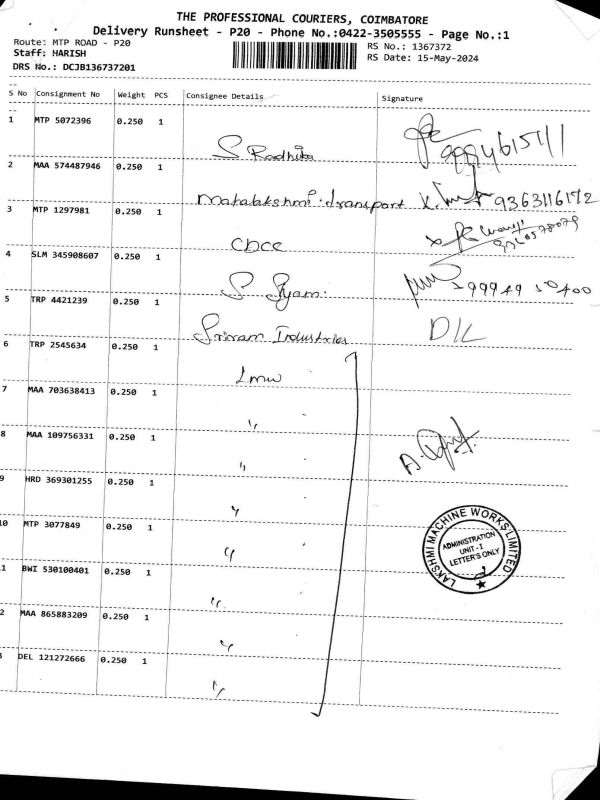 THE PROFESSIONAL COURIERS, COIMBATORE
Delivery Runsheet - P20 - Phone No.:0422-3505555 - Page No.:1
Route: MTP ROAD - P20
RS No.: 1367372
Staff: HARISH
RS Date: 15-May-2024
DRS No.: DCJB136737201
S No Consignment No Weight PCS Consignee Details Signature
1 MTP 5072396 0.250 1
S Radhika
2 MAA 574487946 0.250 1
Mahalakshmi transport 9363116172
3 MTP 1297981 0.250 1
CDCC
4 SLM 345908607 0.250 1
S Syam
5 TRP 4421239 0.250 1
Sriram Industries D/L
6 TRP 2545634 0.250 1
Lmw
7 MAA 703638413 0.250 1
"
8 MAA 109756331 0.250 1
"
9 HRD 369301255 0.250 1
"
10 MTP 3077849 0.250 1
"
1 BWI 530100401 0.250 1
"
2 MAA 865883209 0.250 1
"
3 DEL 121272666 0.250 1
"
LAKSHMI MACHINE WORKS LIMITED
ADMINISTRATION
UNIT - I
LETTER'S ONLY